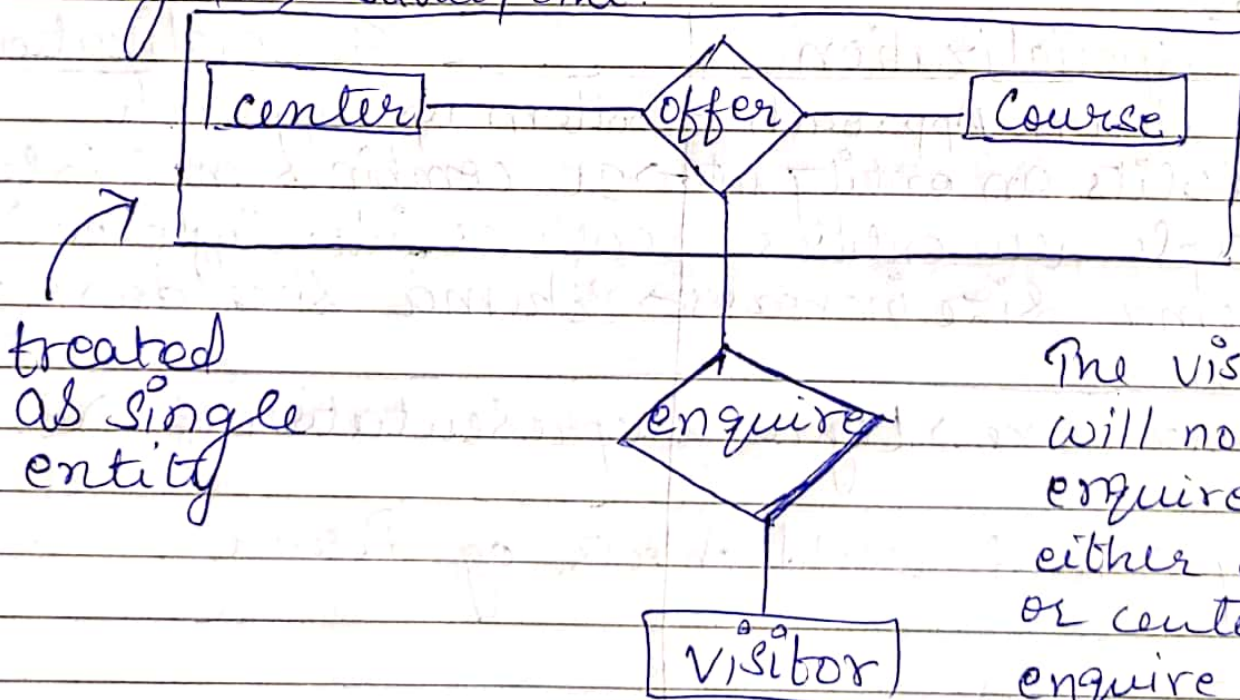 center offer Course
treated
as single
entity
enquire
The vis
will no
enquire
either
or cente
enquire
visitor